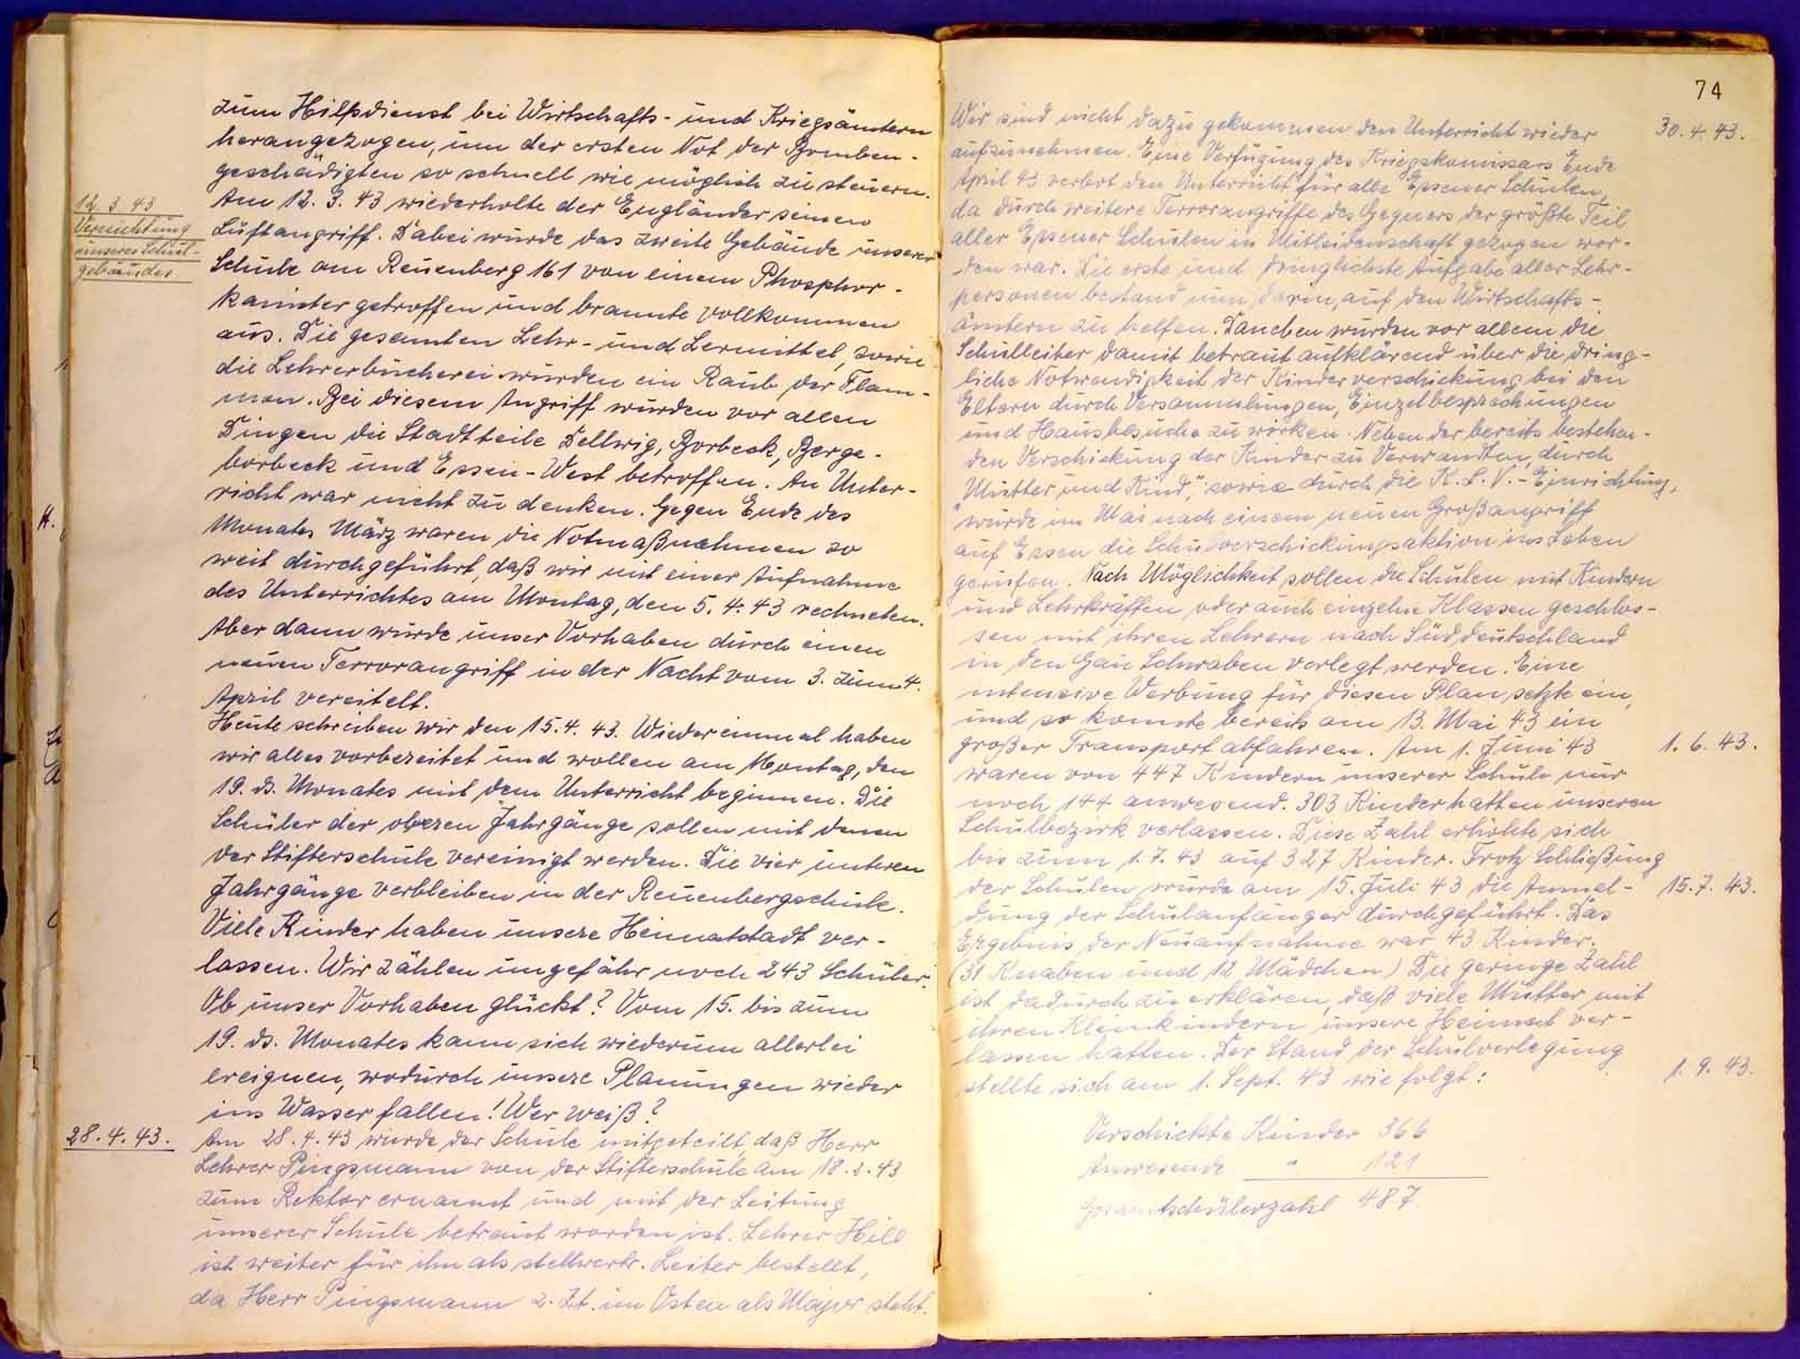 zum Hilfsdienst bei Wirtschafts- und Kriegsämtern
herangezogen, um der ersten Not der Bomben-
geschädigten so schnell wie möglich zu steuern.
12. 3. 43
Vernichtung
unseres Schul-
gebäudes
Am 12. 3. 43 wiederholte der Engländer seinen
Luftangriff. Dabei wurde das zweite Gebäude unserer
Schule am Reuenberg 161 von einem Phosphor-
kanister getroffen und brannte vollkommen
aus. Die gesamten Lehr- und Lernmittel, sowie
die Lehrerbücherei wurden ein Raub der Flam-
men. Bei diesem Angriff wurden vor allen
Dingen die Stadtteile Dellwig, Borbeck, Berge-
borbeck und Essen-West betroffen. An Unter-
richt war nicht zu denken. Gegen Ende des
Monates März waren die Notmaßnahmen so
weit durchgeführt, daß wir mit einer Aufnahme
des Unterrichtes am Montag, den 5. 4. 43 rechneten.
Aber dann wurde unser Vorhaben durch einen
neuen Terrorangriff in der Nacht vom 3. zum 4.
April vereitelt.
Heute schreiben wir den 15. 4. 43. Wieder einmal haben
wir alles vorbereitet und wollen am Montag, den
19. ds. Monates mit dem Unterricht beginnen. Die
Schüler der oberen Jahrgänge sollen mit denen
der Stifterschule vereinigt werden. Die vier unteren
Jahrgänge verbleiben in der Reuenbergschule.
Viele Kinder haben unsere Heimatstadt ver-
lassen. Wir zählen ungefähr noch 243 Schüler.
Ob unser Vorhaben glückt? Vom 15. bis zum
19. ds. Monates kann sich wiederum allerlei
ereignen, wodurch unsere Planungen wieder
ins Wasser fallen! Wer weiß?
28. 4. 43.
Am 28. 4. 43 wurde der Schule mitgeteilt, daß Herr
Lehrer Pingsmann von der Stifterschule am 18. 2. 43
zum Rektor ernannt und mit der Leitung
unserer Schule betraut worden ist. Lehrer Hill
ist weiter für ihn als stellvertr. Leiter bestellt,
da Herr Pingsmann z. Zt. im Osten als Major steht.
74
Wir sind nicht dazu gekommen den Unterricht wieder
30. 4. 43.
aufzunehmen. Eine Verfügung des Kriegskomissars Ende
April 43 verbot den Unterricht für alle Essener Schulen,
da durch weitere Terrorangriffe des Gegners der größte Teil
aller Essener Schulen in Mitleidenschaft gezogen wor-
den war. Die erste und dringlichste Aufgabe aller Lehr-
personen bestand nun darin, auf den Wirtschafts-
ämtern zu helfen. Daneben wurden vor allem die
Schulleiter damit betraut aufklärend über die dring-
liche Notwendigkeit der Kinderverschickung bei den
Eltern durch Versammlungen, Einzelbesprechungen
und Hausbesuche zu wirken. Neben der bereits bestehen-
den Verschickung der Kinder zu Verwandten, durch
"Mutter und Kind," sowie durch die K.L.V.-Einrichtung,
wurde im Mai nach einem neuen Großangriff
auf Essen die Schulverschickungsaktion ins Leben
gerufen. Nach Möglichkeit sollen die Schulen mit Kindern
und Lehrkräften, oder auch einzelne Klassen geschlos-
sen mit ihren Lehrern nach Süddeutschland
in den Gau Schwaben verlegt werden. Eine
intensive Werbung für diesen Plan setzte ein,
und so konnte bereits am 13. Mai 43 ein
großer Transport abfahren. Am 1. Juni 43
1. 6. 43.
waren von 447 Kindern unserer Schule nur
noch 144 anwesend. 303 Kinder hatten unseren
Schulbezirk verlassen. Diese Zahl erhöhte sich
bis zum 1. 7. 43 auf 327 Kinder. Trotz Schließung
der Schulen wurde am 15. Juli 43 die Anmel-
15. 7. 43.
dung der Schulanfänger durchgeführt. Das
Ergebnis der Neuaufnahme war 43 Kinder.
(31 Knaben und 12 Mädchen) Die geringe Zahl
ist dadurch zu erklären, daß viele Mütter mit
ihren Kleinkindern unsere Heimat ver-
lassen hatten. Der Stand der Schulverlegung
stellte sich am 1. Sept. 43 wie folgt:
1. 9. 43.
Verschickte Kinder 366
Anwesende " 121
Gesamtschülerzahl 487